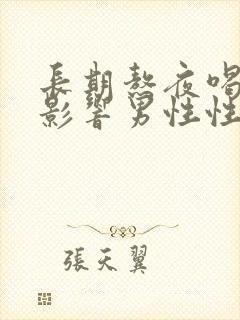 長期熬夜喝
影響男性性
張天翼